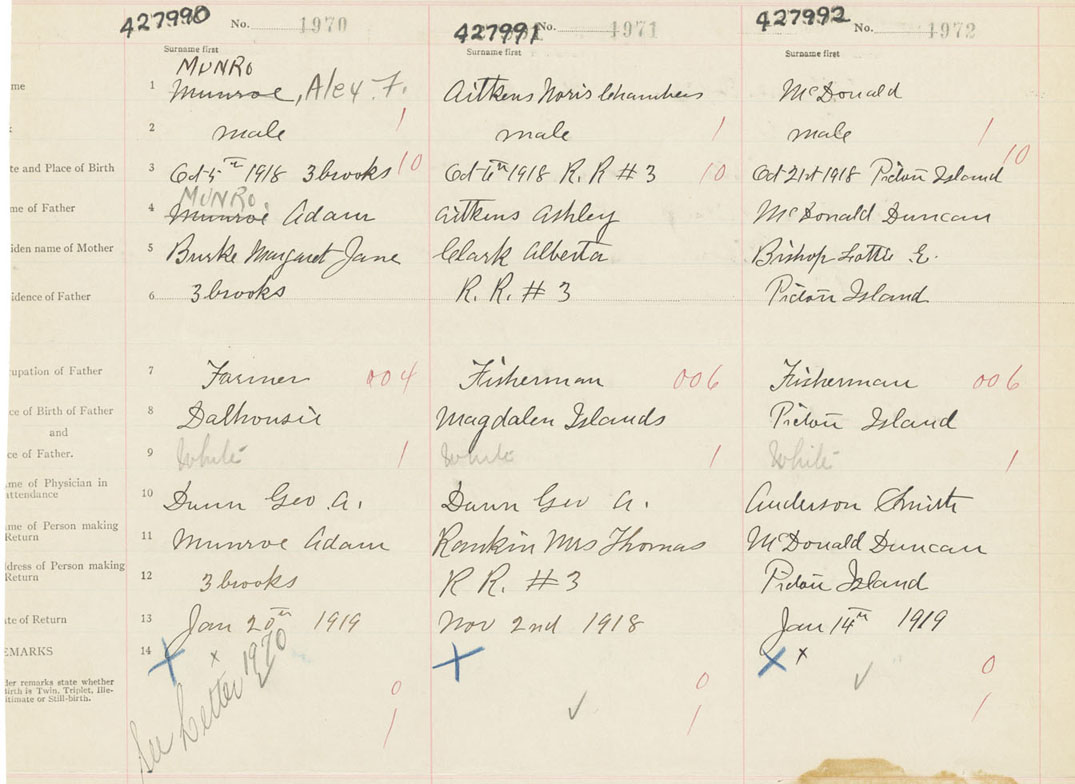 427990 No. 1970 427991 No. 1971 427992 No. 1972
Surname first Surname first Surname first
MUNRO
me 1 Munroe, Alex F. Aitkens Noris Chambers McDonald
2 male 1 male 1 male 1
te and Place of Birth 3 Oct 5th 1918 3 brooks 10 Oct 6th 1918 R. R # 3 10 Oct 21st 1918 Pictou Island 10
MUNRO
me of Father 4 Munroe Adam Aitkens Ashley McDonald Duncan
iden name of Mother 5 Burke Margaret Jane Clark Alberta Bishop Lottie E.
idence of Father 6 3 brooks R. R. # 3 Pictou Island
upation of Father 7 Farmer 004 Fisherman 006 Fisherman 006
ce of Birth of Father 8 Dalhousie Magdalen Islands Pictou Island
and
ce of Father. 9 White 1 White 1 White 1
me of Physician in
attendance 10 Dunn Geo A. Dunn Geo A. Anderson Smith
me of Person making
Return 11 Munroe Adam Rankin Mrs Thomas McDonald Duncan
ddress of Person making
Return 12 3 brooks R R. # 3 Pictou Island
te of Return 13 Jan 20th 1919 Nov 2nd 1918 Jan 14th 1919
EMARKS 14 x x
der remarks state whether
irth is Twin, Triplet, Ille-
itimate or Still-birth.
See Letter 1970
0 0 0
1 1 1